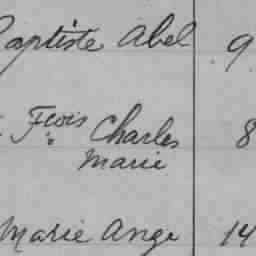 Baptiste Abel 9
Fcois Charles 8
Marie
Marie Ange 14